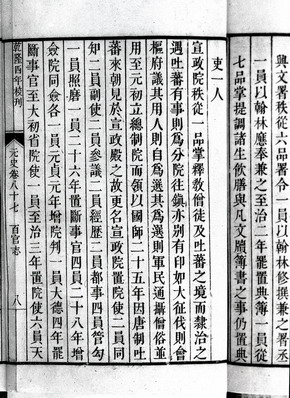 興文署秩從六品署令一員以翰林修撰兼之署丞
一員以翰林應奉兼之至治二年罷置典簿一員從
七品掌提調諸生飲膳與凡文牘簿書之事仍置典
吏一人
宣政院秩從一品掌釋教僧徒及吐蕃之境而隸治之
遇吐蕃有事則爲分院往鎮亦別有印如大征伐則會
樞府議其用人則自爲選其爲選則軍民通攝僧俗並
用至元初立總制院而領以國師二十五年因唐制吐
蕃來朝見於宣政殿之故更名宣政院置院使二員同
知二員副使二員參議二員經歷二員都事四員管勾
一員照磨一員二十六年置斷事官四員二十八年增
僉院同僉各一員元貞元年增院判一員大德四年罷
斷事官至大初省院使一員至治三年置院使六員天
乾隆四年校刊
元史卷八十七
百官志
八